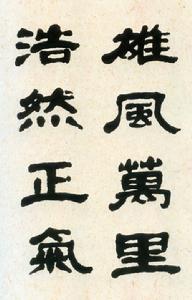 雄風萬里
浩然正氣